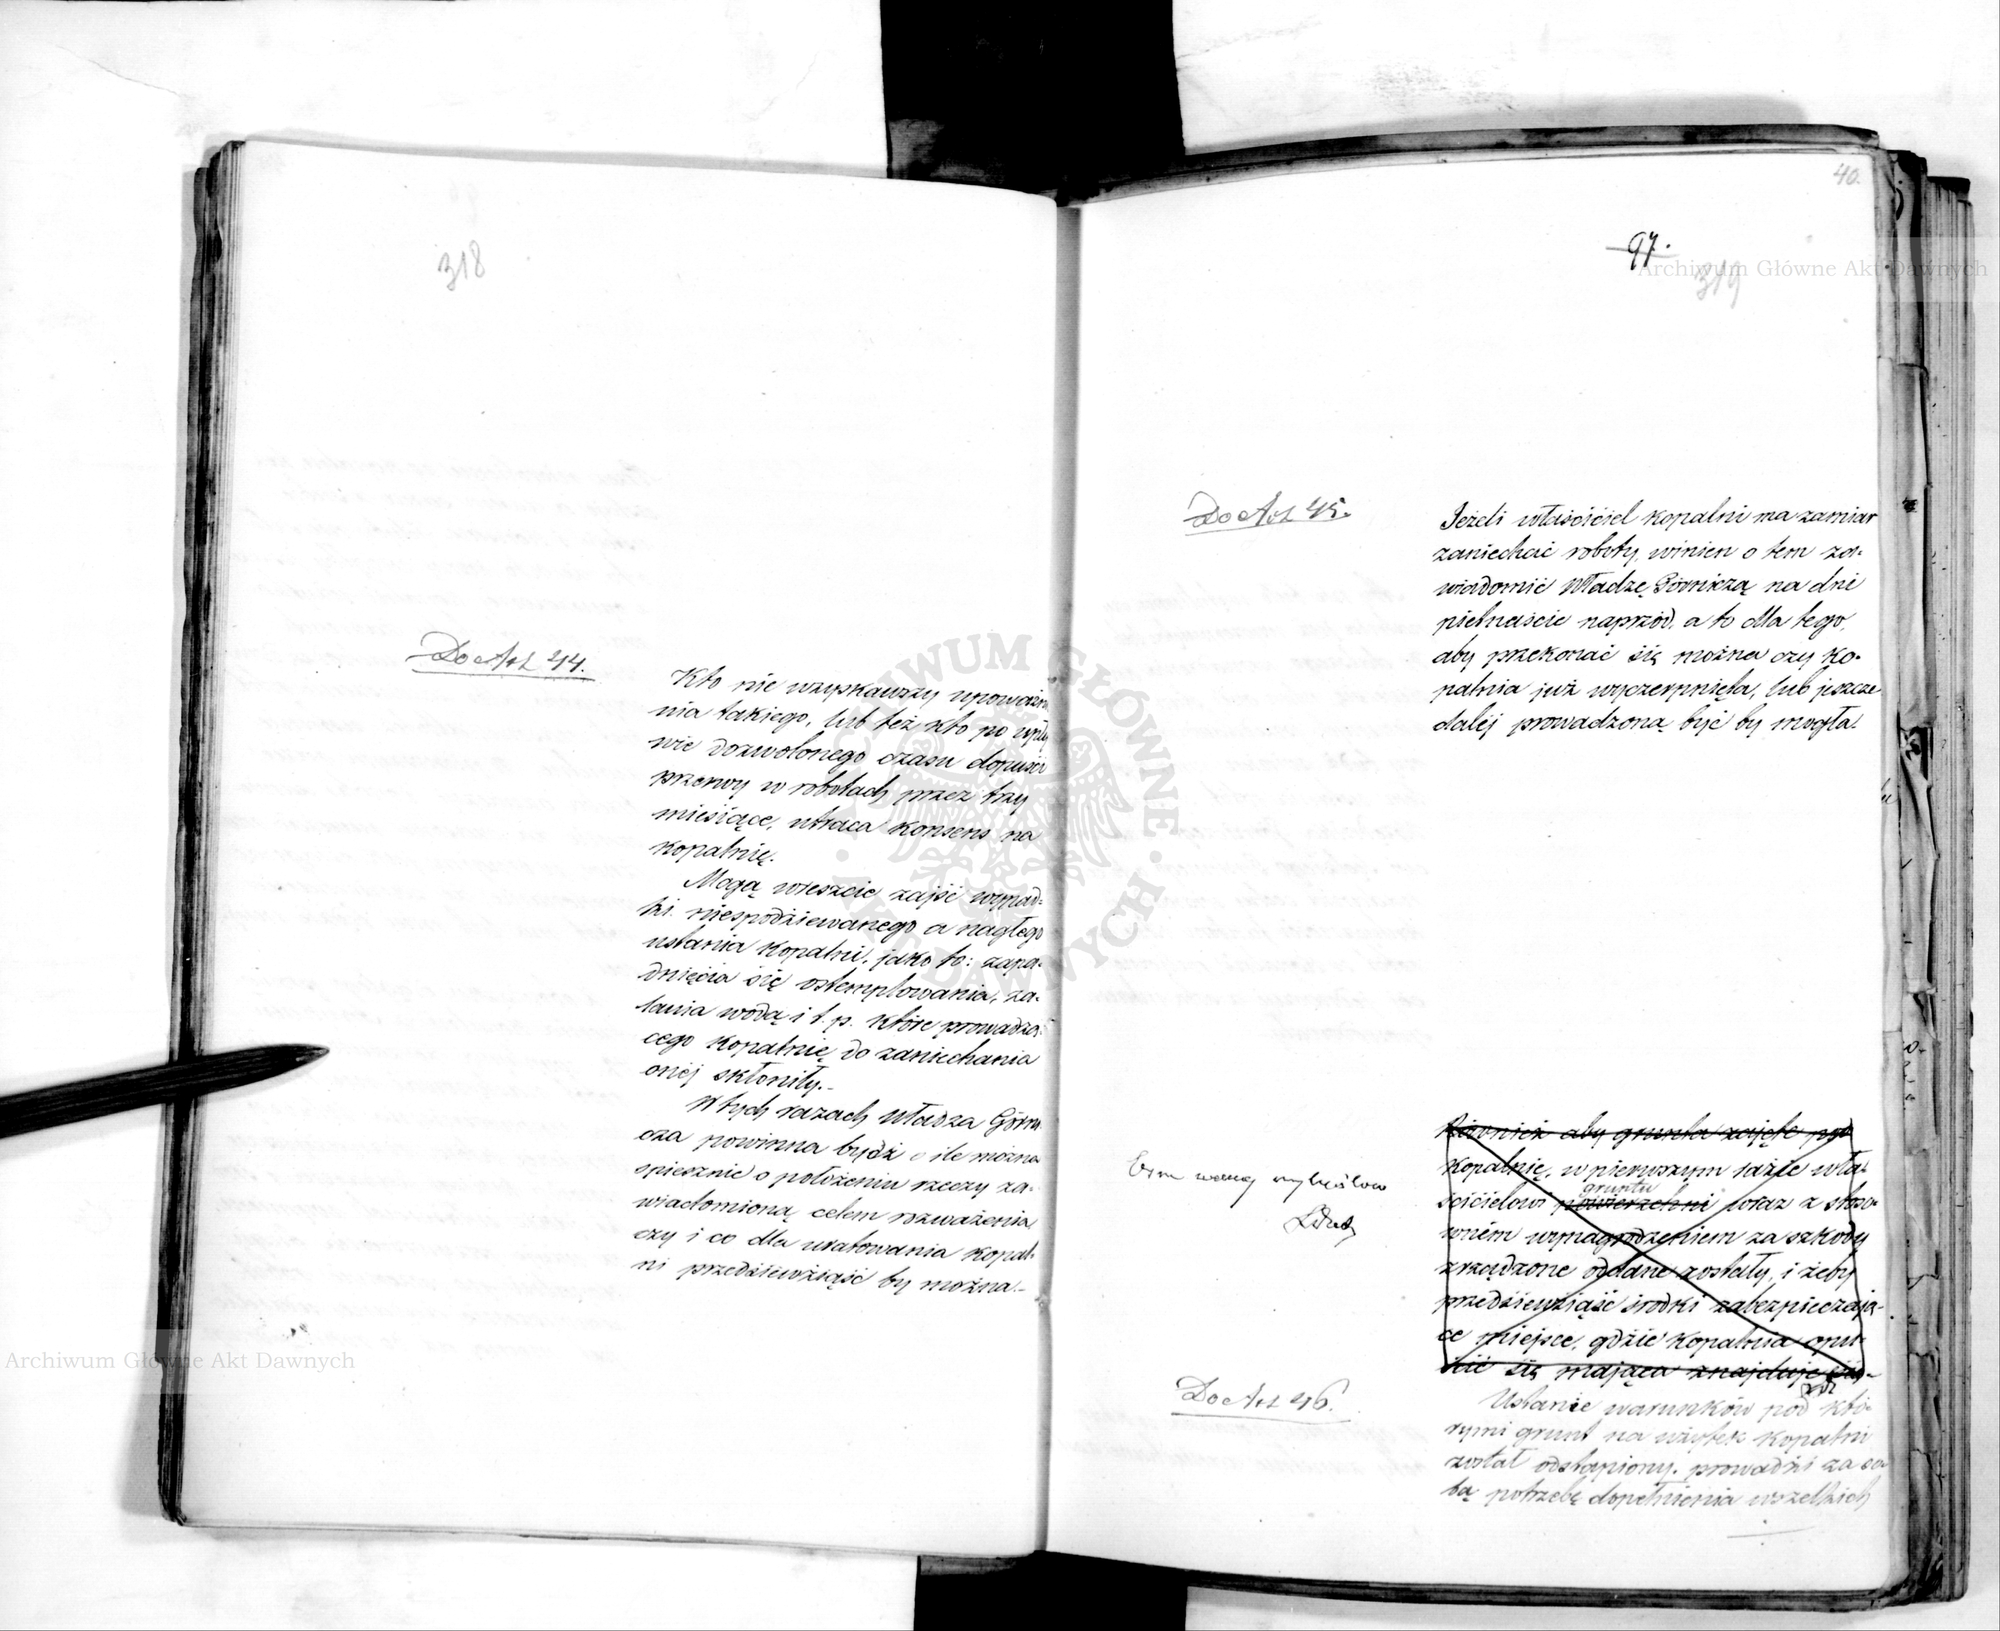 318
Do Art 44.
Kto nie uzyskawszy upoważnie
nia takiego, lub też kto po upły
wie dozwolonego czasu dopuści
przerwy w robotach przez trzy
miesiące, utraca konsens na
kopalnię.
Mogą wreszcie zajść wypad-
ki niespodziewanego a nagłego
ustania kopalni, jako to: zapa-
dnięcia się ostemplowania, za-
lania wodą i t. p. które prowadzą-
cego kopalnię do zaniechania
onej skłoniły.-
W tych razach Władza Górni
cza powinna bydź o ile można
spiesznie o położeniu rzeczy za-
wiadomioną celem rozważenia
czy i co dla uratowania kopal-
ni przedsiewziąść by można.-
40.
97.
319
Do Art 45.
Jeżeli właściciel kopalni ma zamiar
zaniechać roboty, winien o tem za-
wiadomić Władzę Górniczą na dni
piętnaście naprzód, a to dla tego,
aby przekonać się można czy ko-
palnia już wyczerpnięta, lub jeszcze
dalej prowadzoną być by mogła.
Również aby grunta zajęte pod
kopalnię, w pierwszym razie wła-
ścicielowi powierzchni gruntu wraz z stoso-
wném wynagrodzeniem za szkody
zrządzone oddane zostały, i żeby
przedsiewziąść środki zabezpieczają-
ce miejsce, gdzie kopalnia opu-
ścić się mająca znajduje się.-
Do Art 46.
Ustanie warunków pod któ-
rymi grunt na użytek kopalni
został odstąpiony, prowadzi za so-
bą potrzebę dopełnienia wszelkich
Archiwum Główne Akt Dawnych
Archiwum Główne Akt Dawnych
ARCHIWUM GŁÓWNE AKT DAWNYCH